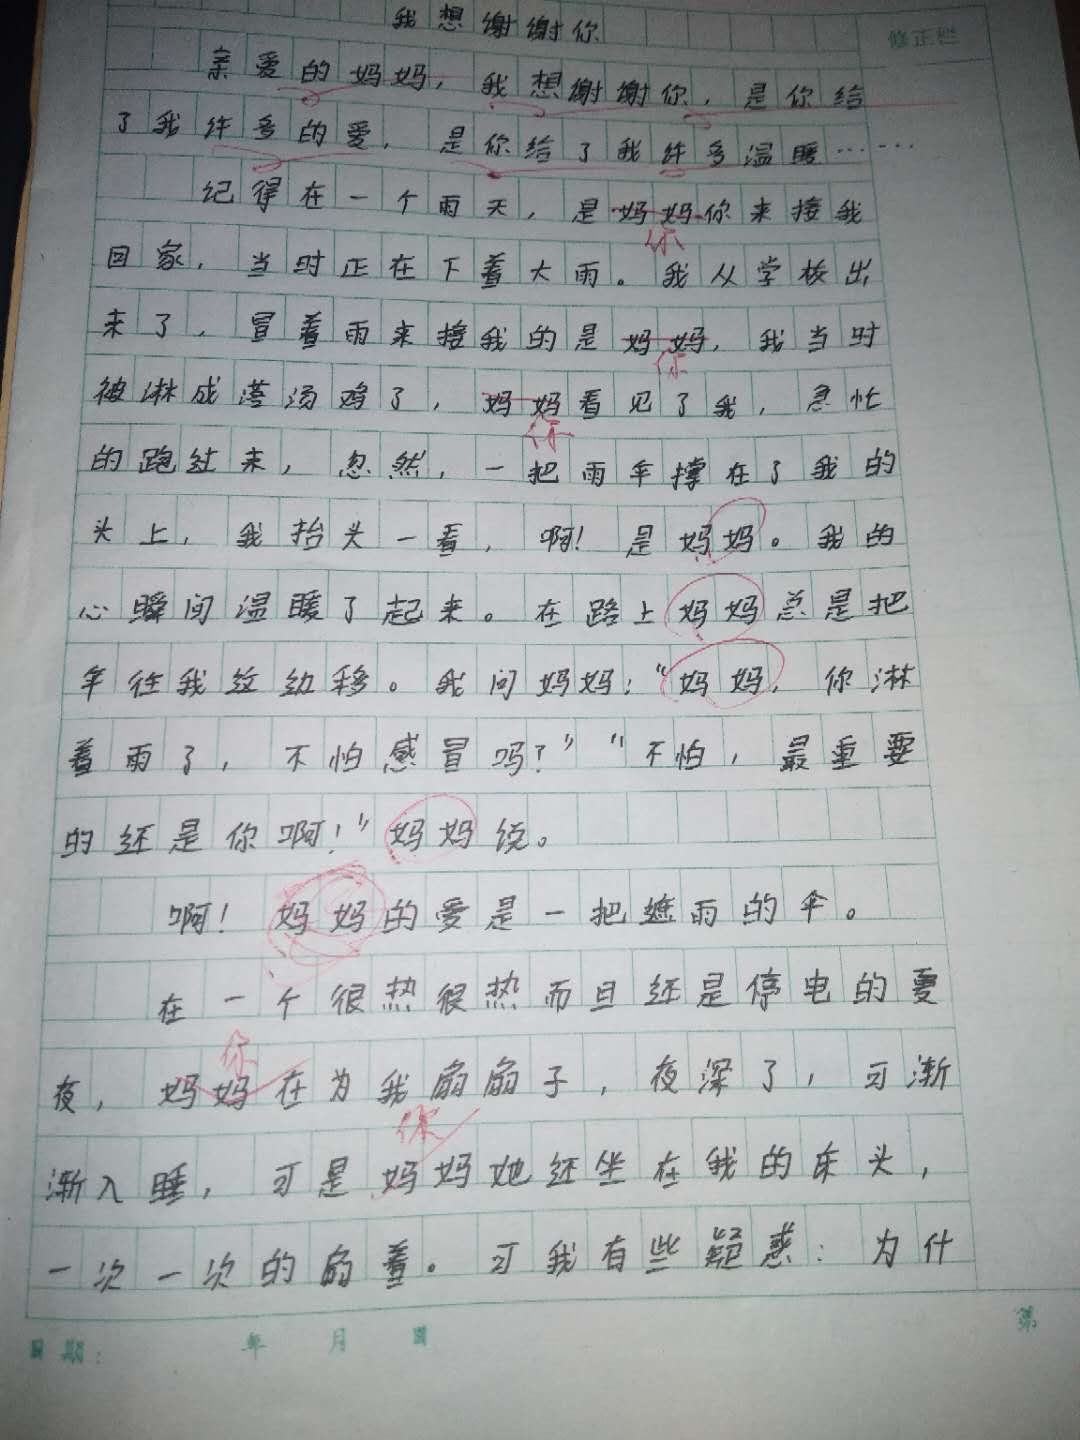 我想谢谢你
修正栏
亲爱的妈妈，我想谢谢你，是你给
了我许多的爱，是你给了我许多温暖……
记得在一个雨天，是妈妈你来接我
你
回家，当时正在下着大雨。我从学校出
来了，冒着雨来接我的是妈妈，我当时
你
被淋成落汤鸡了，妈妈看见了我，急忙
你
的跑过来，忽然，一把雨伞撑在了我的
头上，我抬头一看，啊！是妈妈。我的
心瞬间温暖了起来。在路上妈妈总是把
伞往我这边移。我问妈妈：“妈妈，你淋
着雨了，不怕感冒吗？”“不怕，最重要
的还是你啊！”妈妈说。
啊！妈妈的爱是一把遮雨的伞。
在一个很热很热而且还是停电的夏
你
夜，妈妈在为我扇扇子，夜深了，可渐
你
渐入睡，可是妈妈她还坐在我的床头，
一次一次的扇着。可我有些疑惑：为什
日期：　年　月　日
第